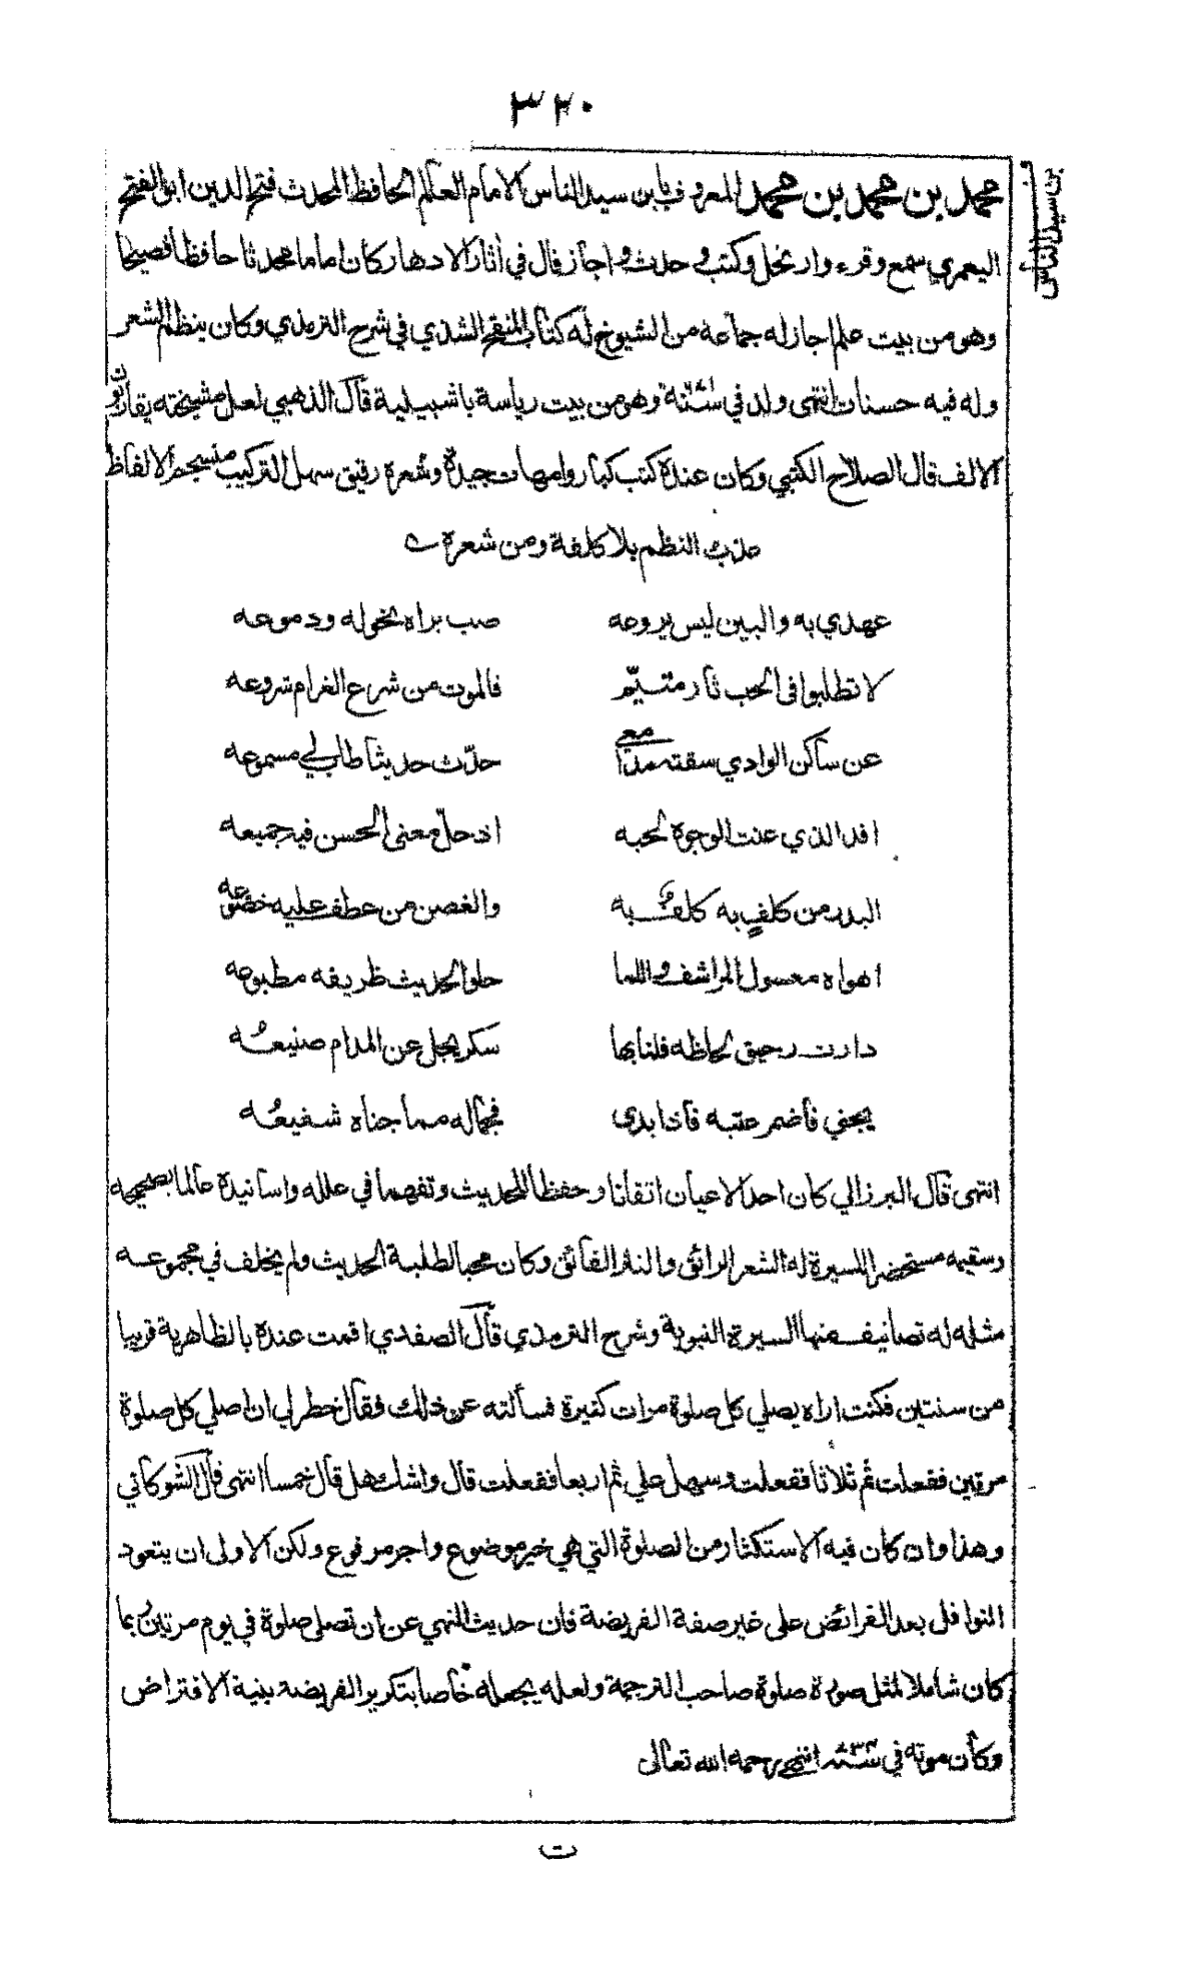 ٣٢٠
بن سيد الناس
محمد بن محمد بن محمد المعروف بابن سيد الناس الامام العلم الحافظ المحدث فتح الدين ابو الفتح
اليعمري سمع وقرء وارتحل وكتب و حدث و اجاز قال في آثار الادهار كان اماما محدثا حافظا فصيحا
وهو من بيت علم اجاز له جماعة من الشيوخ له كتاب المنقح الشذي في شرح الترمذي وكان ينظم الشعر
وله فيه حسنات انتهى ولد في سنة وهو من بيت رياسة باشبيلية قال الذهبي لعل مشيخته يقاربون
الالف قال الصلاح الكتبي وكان عنده كتب كبار وامهات جيدة وشعره رقيق سهل التركيب منسجم الالفاظ
عذب النظم بلا كلفة ومن شعره
عهدي به والبين ليس يروعه صب براه نحوله ودموعه
لا تطلبوا في الحب ثار متيّم فالموت من شرع الغرام شروعه
عن ساكن الوادي سقته مدامعي حدّث حديثا طاب لي مسموعه
افدا الذي عنت الوجوه لحبه اذ حلّ معنى الحسن فيه جميعه
البدر من كلفٍ به كلفُ به والغصن من عطف عليه خضوعه
اهواه معسول المراشف و اللما حلو الحديث ظريفه مطبوعه
دارت رحيق لحاظه فلنا بها سكر يجل عن المدام صنيعُه
يجني فاضمر عتبه فاذا بدى فجماله مما جناه شفيعُه
انتهى قال البرزالي كان احد الاعيان اتقانا وحفظا للحديث وتفهما في علله واسانيده عالما بصحيحه
وسقيمه مستحضرا للسيرة له الشعر الرائق والنثر الفائق وكان محبا لطلبة الحديث ولم يخلف في مجموعه
مثله له تصانيف منها السيرة النبوية وشرح الترمذي قال الصفدي اقمت عنده بالظاهرية قريبا
من سنتين فكنت اراه يصلي كل صلوة مرات كثيرة فسألته عن ذلك فقال خطر لي ان اصلي كل صلوة
مرتين ففعلت ثم ثلاثا ففعلت وسهل علي ثم اربعا ففعلت قال واشك هل قال خمسا انتهى قال الشوكاني
وهذا وان كان فيه الاستكثار من الصلوة التي هي خير موضوع واجر مرفوع ولكن الاولى ان يتعود
النوافل بعد الفرائض على غير صفة الفريضة فان حديث النهي عن ان تصلى صلوة في يوم مرتين ربما
كان شاملا لمثل صورة صلوة صاحب الترجمة ولعله يجعله خاصا بتكرير الفريضة بنية الافتراض
وكان موته في سنة انتهى رحمه الله تعالى
ت